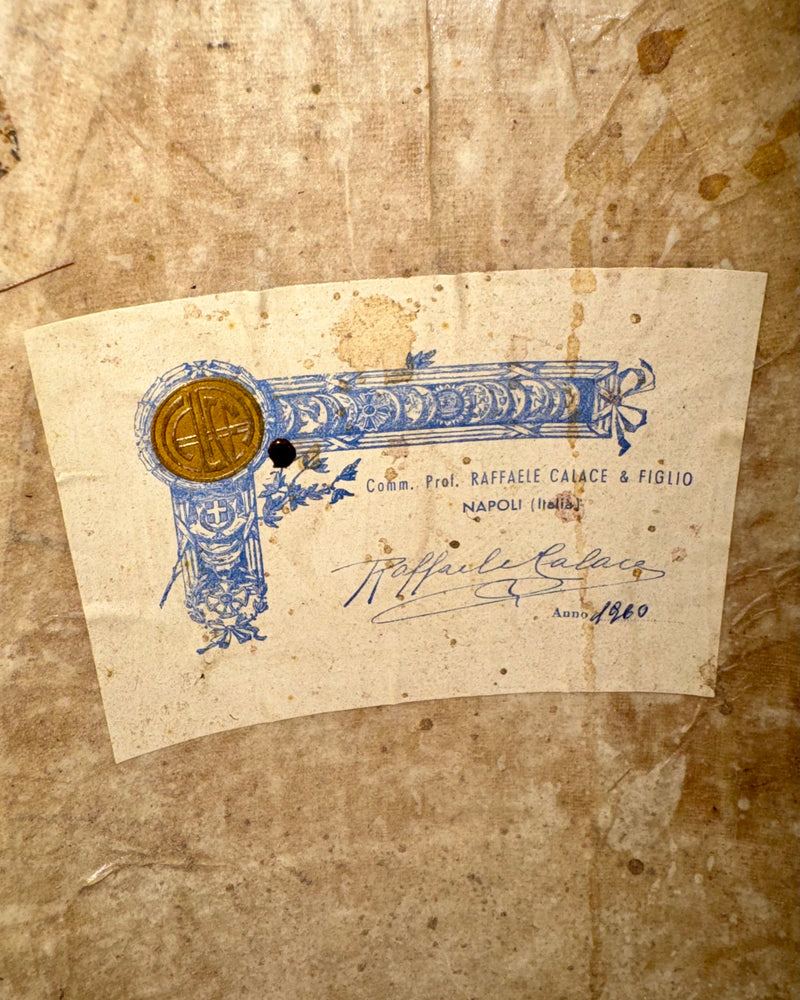 Comm. Prof. RAFFAELE CALACE & FIGLIO
NAPOLI (Italia)
Raffaele Calace
Anno 1960